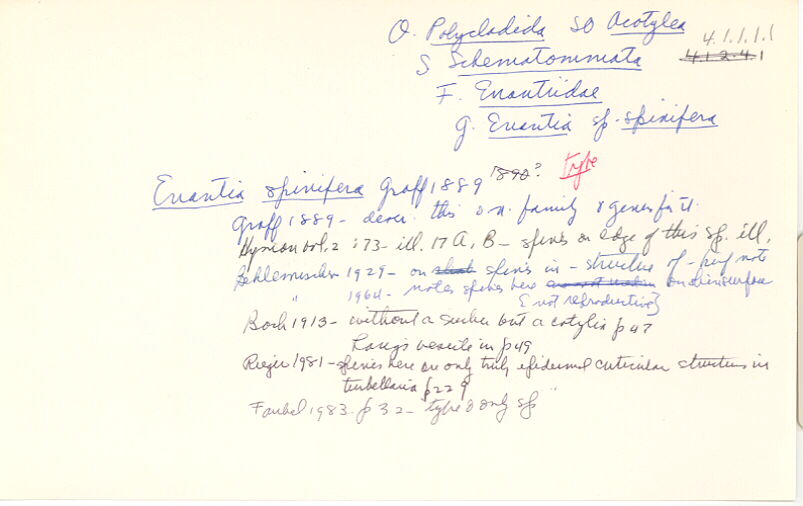 O. Polycladida SO Acotylea
4.1.1.1.1
S Schematommata 4.1.2.4.1
F. Enantiidae
g. Enantia sp. spinifera
Enantia spinifera Graff 1889 1890? type
Graff 1889 - descr. this & n. family & genus for it.
Hyman vol. 2 : 73 - ill. 17 A, B - spines on edge of this sp. ill.
1929 - on spines in - structure of - note
" 1964 - notes spines here on surface
[not reproductive]
Bock 1913 - without a sucker but a cotylea p 47
Lang's vesicle in p 49
Rieger 1981 - spines here are only truly epidermal cuticular structures in
turbellaria p 229
Faubel 1983 p 32 - type & only sp